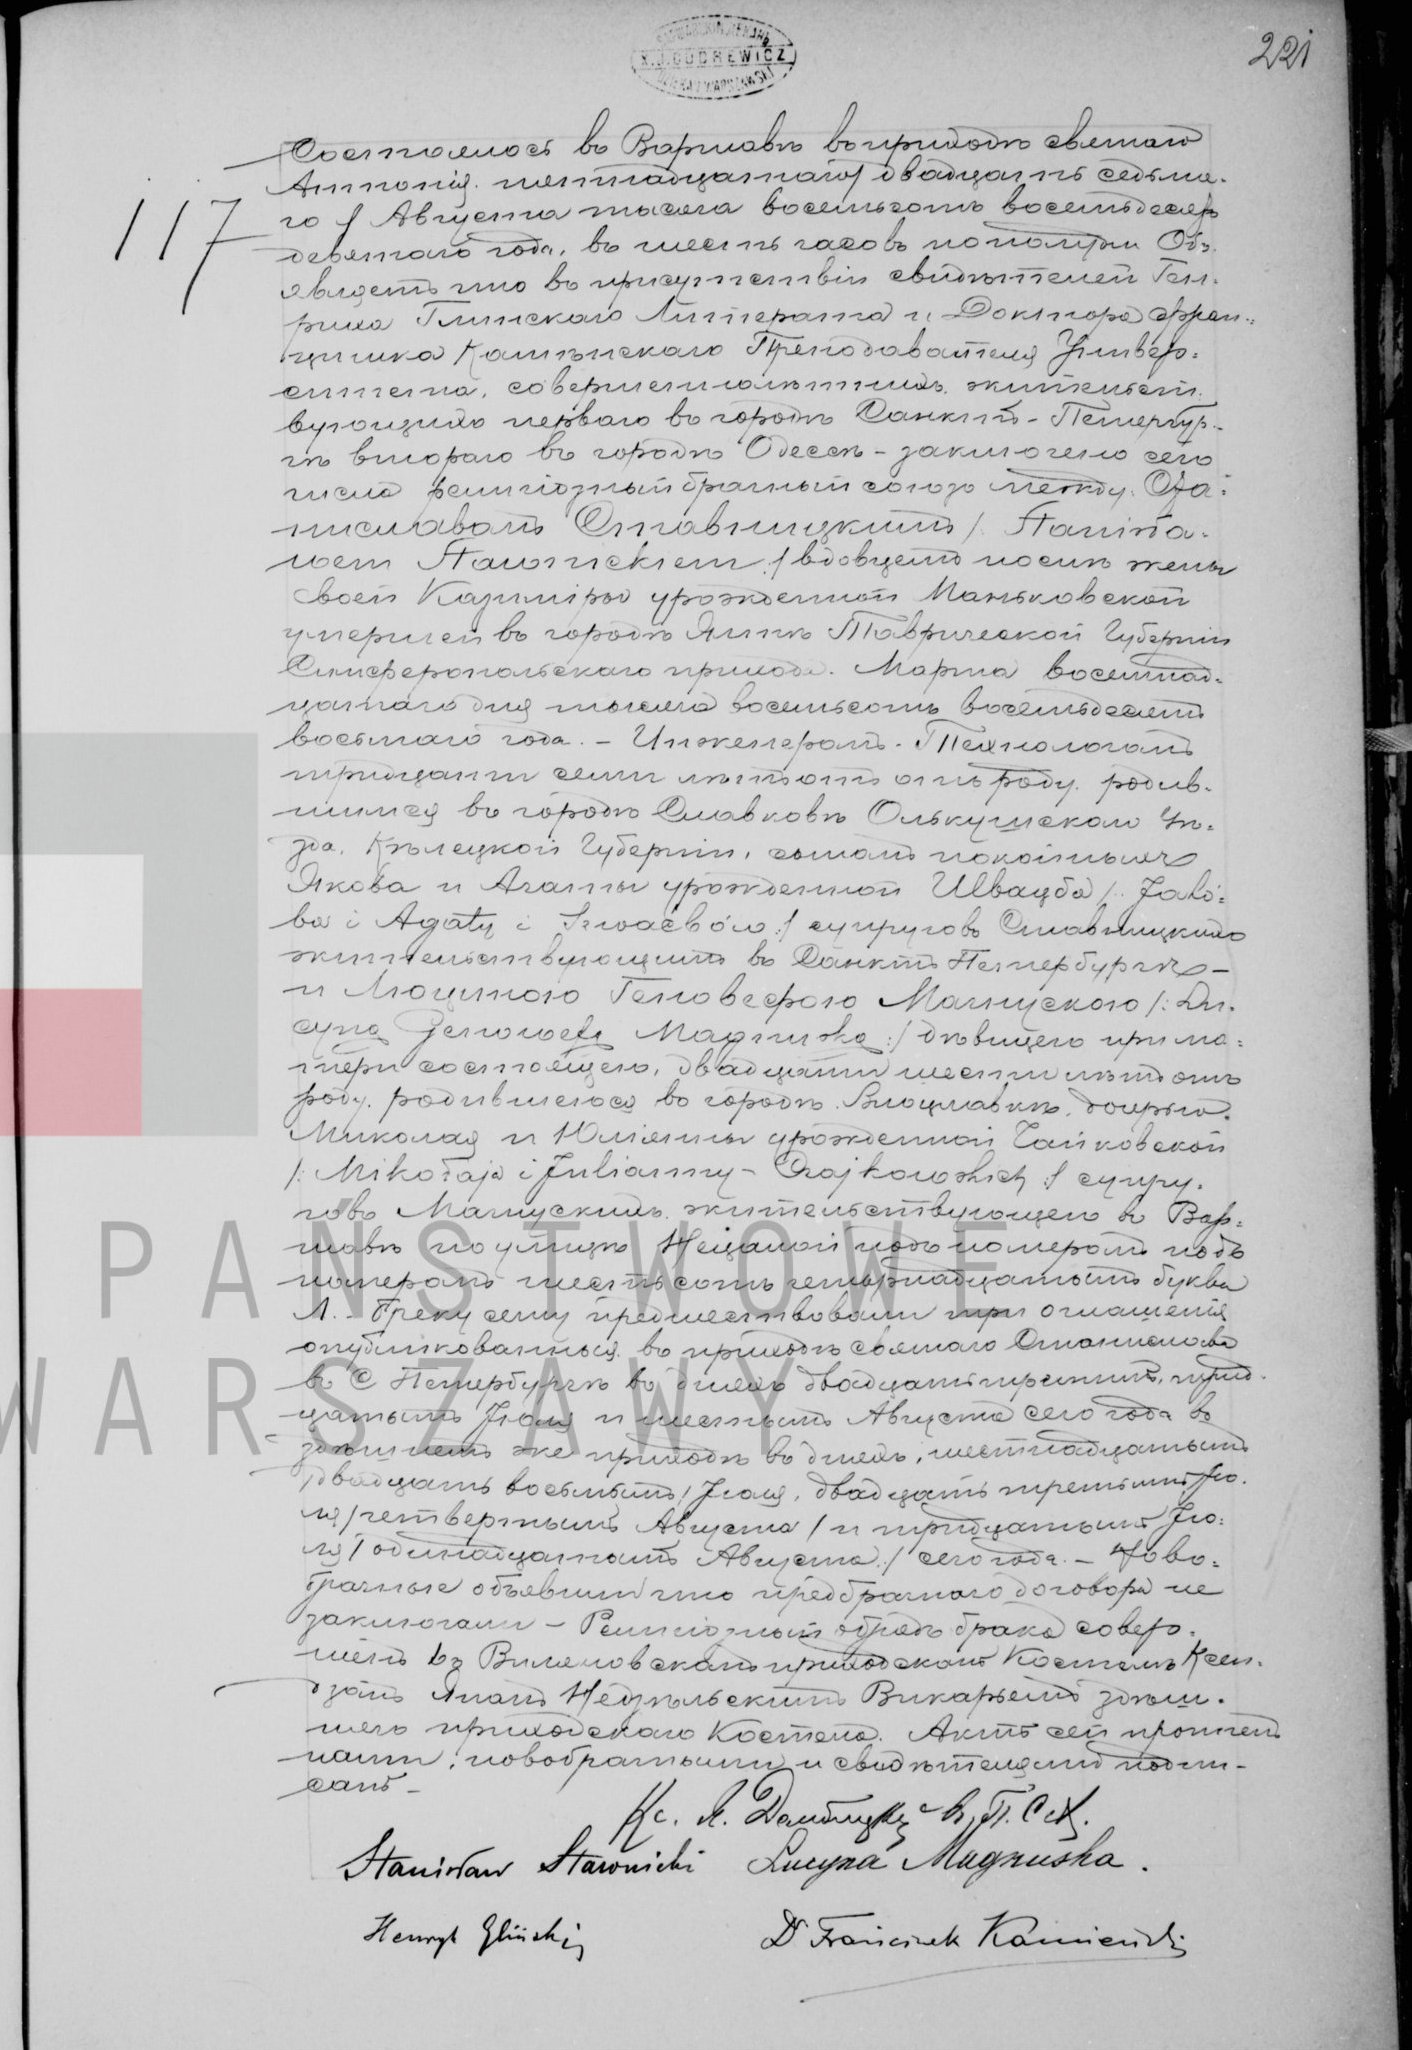 221
K.J. DUDREWICZ
117
Состоялось въ Варшавѣ въ приходѣ святаго
Антонія пятнадцатаго / двадцать седьма-
го / Августа тысяча восемьсотъ восемьдесятъ
девятаго года, въ шесть часовъ пополудни Объ-
являемъ что въ присутствіи свидѣтелей Ген-
риха Глинскаго Литерата и Доктора Фран-
цишка Каменскаго Преподавателя Универ-
ситета, совершеннолѣтнихъ жительст-
вующихъ перваго въ городѣ Санктъ-Петербур-
гѣ втораго въ городѣ Одессѣ - заключено сего
числа религіозный брачный союзъ между Ста-
ниславомъ Ставницкимъ /: Stanisła-
wem Stawnickiem :/ вдовцемъ послѣ жены
своей Казиміры урожденной Маньковской
умершей въ городѣ Ялтѣ Таврической Губерніи
Симферопольскаго прихода Марта восемнад-
цатаго дня тысяча восемьсотъ восемьдесятъ
восьмаго года. - Инженеромъ-Технологомъ
тридцати семи лѣтъ отъ роду, родив-
шимся въ городѣ Славковѣ Олькушскаго Уѣ-
зда, Кѣлецкой Губерніи, сыномъ покойныхъ
Якова и Агаты урожденной Швацба /: Jakó-
ba i Agaty i :/ супруговъ Ставницкихъ
жительствующимъ въ Санктъ Петербургѣ -
и Люциною Геновефою Магнускою /: Lu-
cyną Genowefą Magnuską :/ дѣвицею при ма-
тери состоящею, двадцати шести лѣтъ отъ
роду, родившеюся въ городѣ Влоцлавкѣ, дочерью
Миколая и Юліянны урожденной Чайковской
/: Mikołaja i Julianny - Czajkowskich :/ супру-
говъ Магнускихъ, жительствующею въ Вар-
шавѣ по улицѣ Нецалой подъ номеромъ подъ
номеромъ шестьсотъ четырнадцатымъ буква
Л. - Браку сему предшествовали три оглашенія
опубликованныя въ приходѣ святаго Станислава
въ С Петербургѣ въ дняхъ двадцать третьимъ, трид-
цатымъ Іюля и шестымъ Августа сего года въ
здѣшнемъ же приходѣ въ дняхъ, шестнадцатымъ
/двадцать восьмымъ/ Іюля, двадцать третьимъ Ію-
ля /четвертымъ Августа/ и тридцатымъ Ію-
ля / одинадцатымъ Августа / сего года. - Ново-
брачные объявили что предбрачнаго договора не
заключали - Религіозный обрядъ брака совер-
шенъ въ Виляновскомъ приходскомъ Костелѣ Ксен-
дзомъ Яномъ Недзѣльскимъ Викарьемъ здѣш-
няго приходскаго Костела. Актъ сей прочтенъ
нами, новобрачными и свидѣтелями подпи-
санъ -
Stanisław Stawnicki Lucyna Magnuska.
Henryk Gliński Dr Franciszek Kamieński
PAŃSTWOWE
WARSZAWY